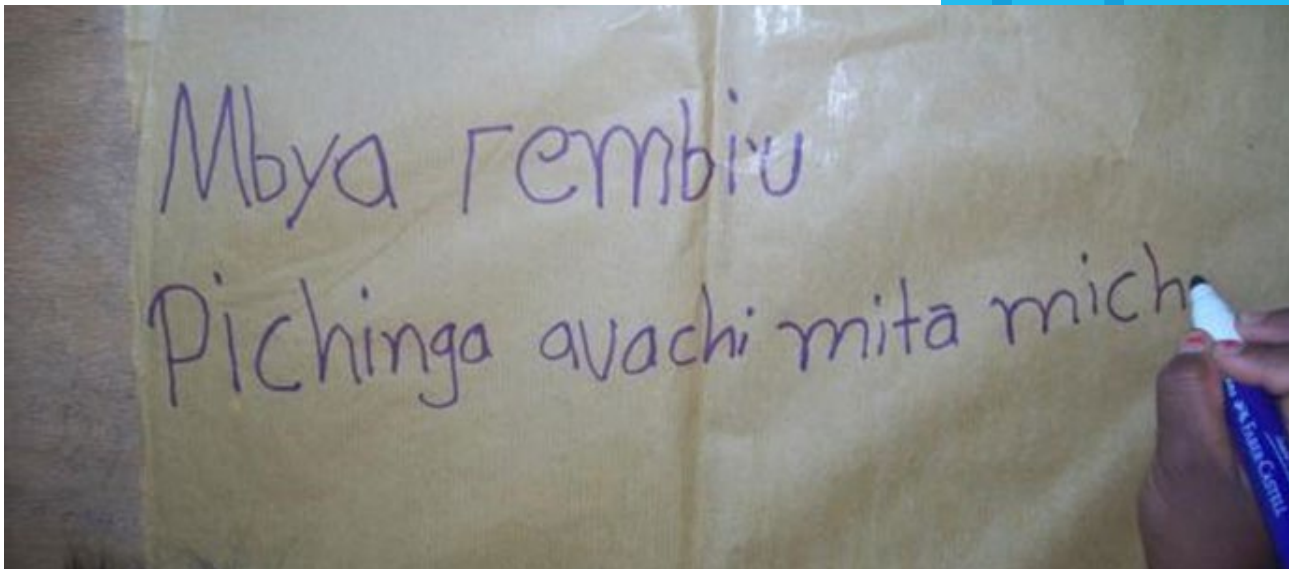 Mbya rembiu
Pichinga avachi mita mich
FABER CASTELL